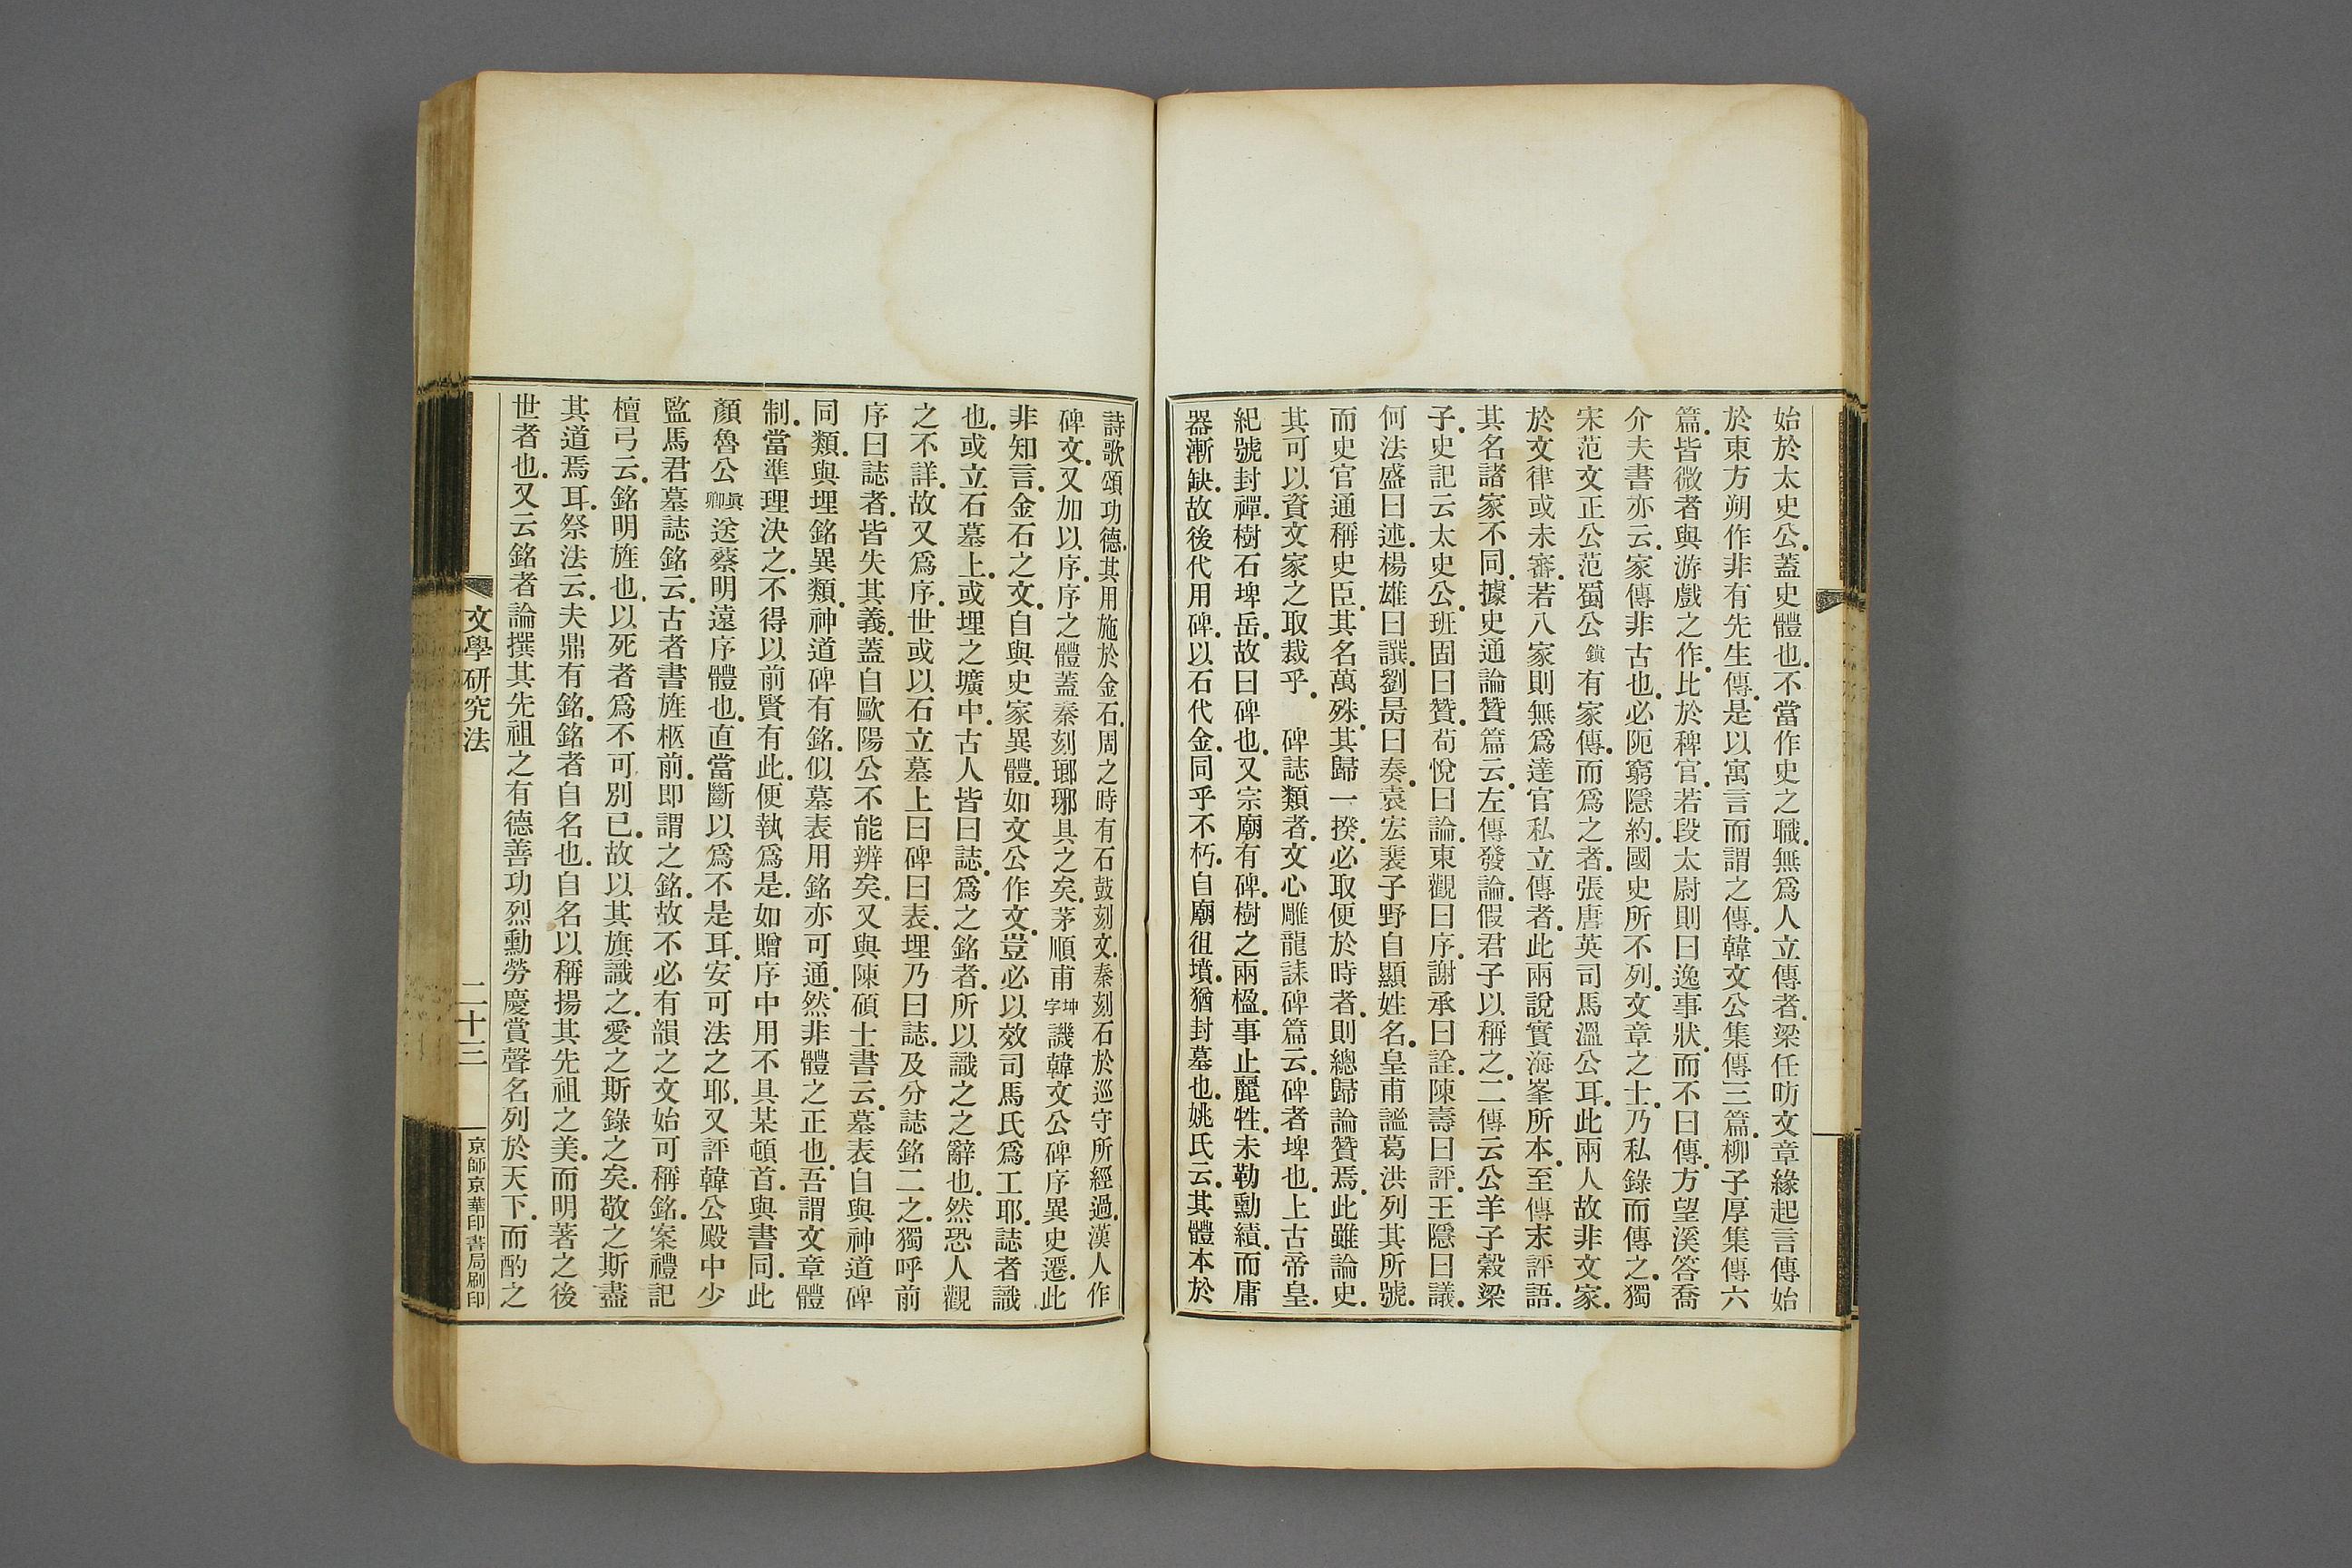 始於太史公．蓋史體也．不當作史之職．無爲人立傳者．梁任昉文章緣起言傳始
於東方朔作非有先生傳．是以寓言而謂之傳．韓文公集傳三篇．柳子厚集傳六
篇．皆微者與游戲之作．比於稗官．若段太尉則曰逸事狀．而不曰傳．方望溪答喬
介夫書亦云．家傳非古也．必阨窮隱約．國史所不列．文章之士．乃私錄而傳之．獨
宋范文正公范蜀公鎭有家傳．而爲之者．張唐英司馬溫公耳．此兩人故非文家．
於文律或未審．若八家則無爲達官私立傳者．此兩說實海峯所本．至傳末評語．
其名諸家不同．據史通論贊篇云．左傳發論．假君子以稱之．二傳云公羊子穀梁
子．史記云太史公．班固曰贊．荀悅曰論．東觀曰序．謝承曰詮．陳壽曰評．王隱曰議．
何法盛曰述．楊雄曰譔．劉昺曰奏．袁宏裴子野自顯姓名．皇甫謐葛洪列其所號．
而史官通稱史臣．其名萬殊．其歸一揆．必取便於時者．則總歸論贊焉．此雖論史．
其可以資文家之取裁乎．　碑誌類者．文心雕龍誄碑篇云．碑者埤也．上古帝皇．
紀號封禪．樹石埤岳．故曰碑也．又宗廟有碑．樹之兩楹．事止麗牲．未勒勳績．而庸
器漸缺．故後代用碑．以石代金．同乎不朽．自廟徂墳．猶封墓也．姚氏云．其體本於
詩歌頌功德．其用施於金石．周之時有石鼓刻文．秦刻石於巡守所經過．漢人作
碑文．又加以序．序之體蓋秦刻瑯琊具之矣．茅順甫坤字譏韓文公碑序異史遷．此
非知言．金石之文．自與史家異體．如文公作文．豈必以效司馬氏爲工耶．誌者識
也．或立石墓上．或埋之壙中．古人皆曰誌．爲之銘者．所以識之之辭也．然恐人觀
之不詳．故又爲序．世或以石立墓上曰碑曰表．埋乃曰誌．及分誌銘二之．獨呼前
序曰誌者．皆失其義．蓋自歐陽公不能辨矣．又與陳碩士書云．墓表自與神道碑
同類．與埋銘異類．神道碑有銘．似墓表用銘亦可通．然非體之正也．吾謂文章體
制．當準理決之．不得以前賢有此．便執爲是．如贈序中用不具某頓首．與書同．此
顏魯公眞卿送蔡明遠序體也．直當斷以爲不是耳．安可法之耶．又評韓公殿中少
監馬君墓誌銘云．古者書旌柩前．即謂之銘．故不必有韻之文始可稱銘．案禮記
檀弓云．銘明旌也．以死者爲不可別已．故以其旗識之．愛之斯錄之矣．敬之斯盡
其道焉耳．祭法云．夫鼎有銘．銘者自名也．自名以稱揚其先祖之美．而明著之後
世者也．又云銘者論撰其先祖之有德善功烈勳勞慶賞聲名列於天下．而酌之
文學研究法
二十三
京師京華印書局刷印